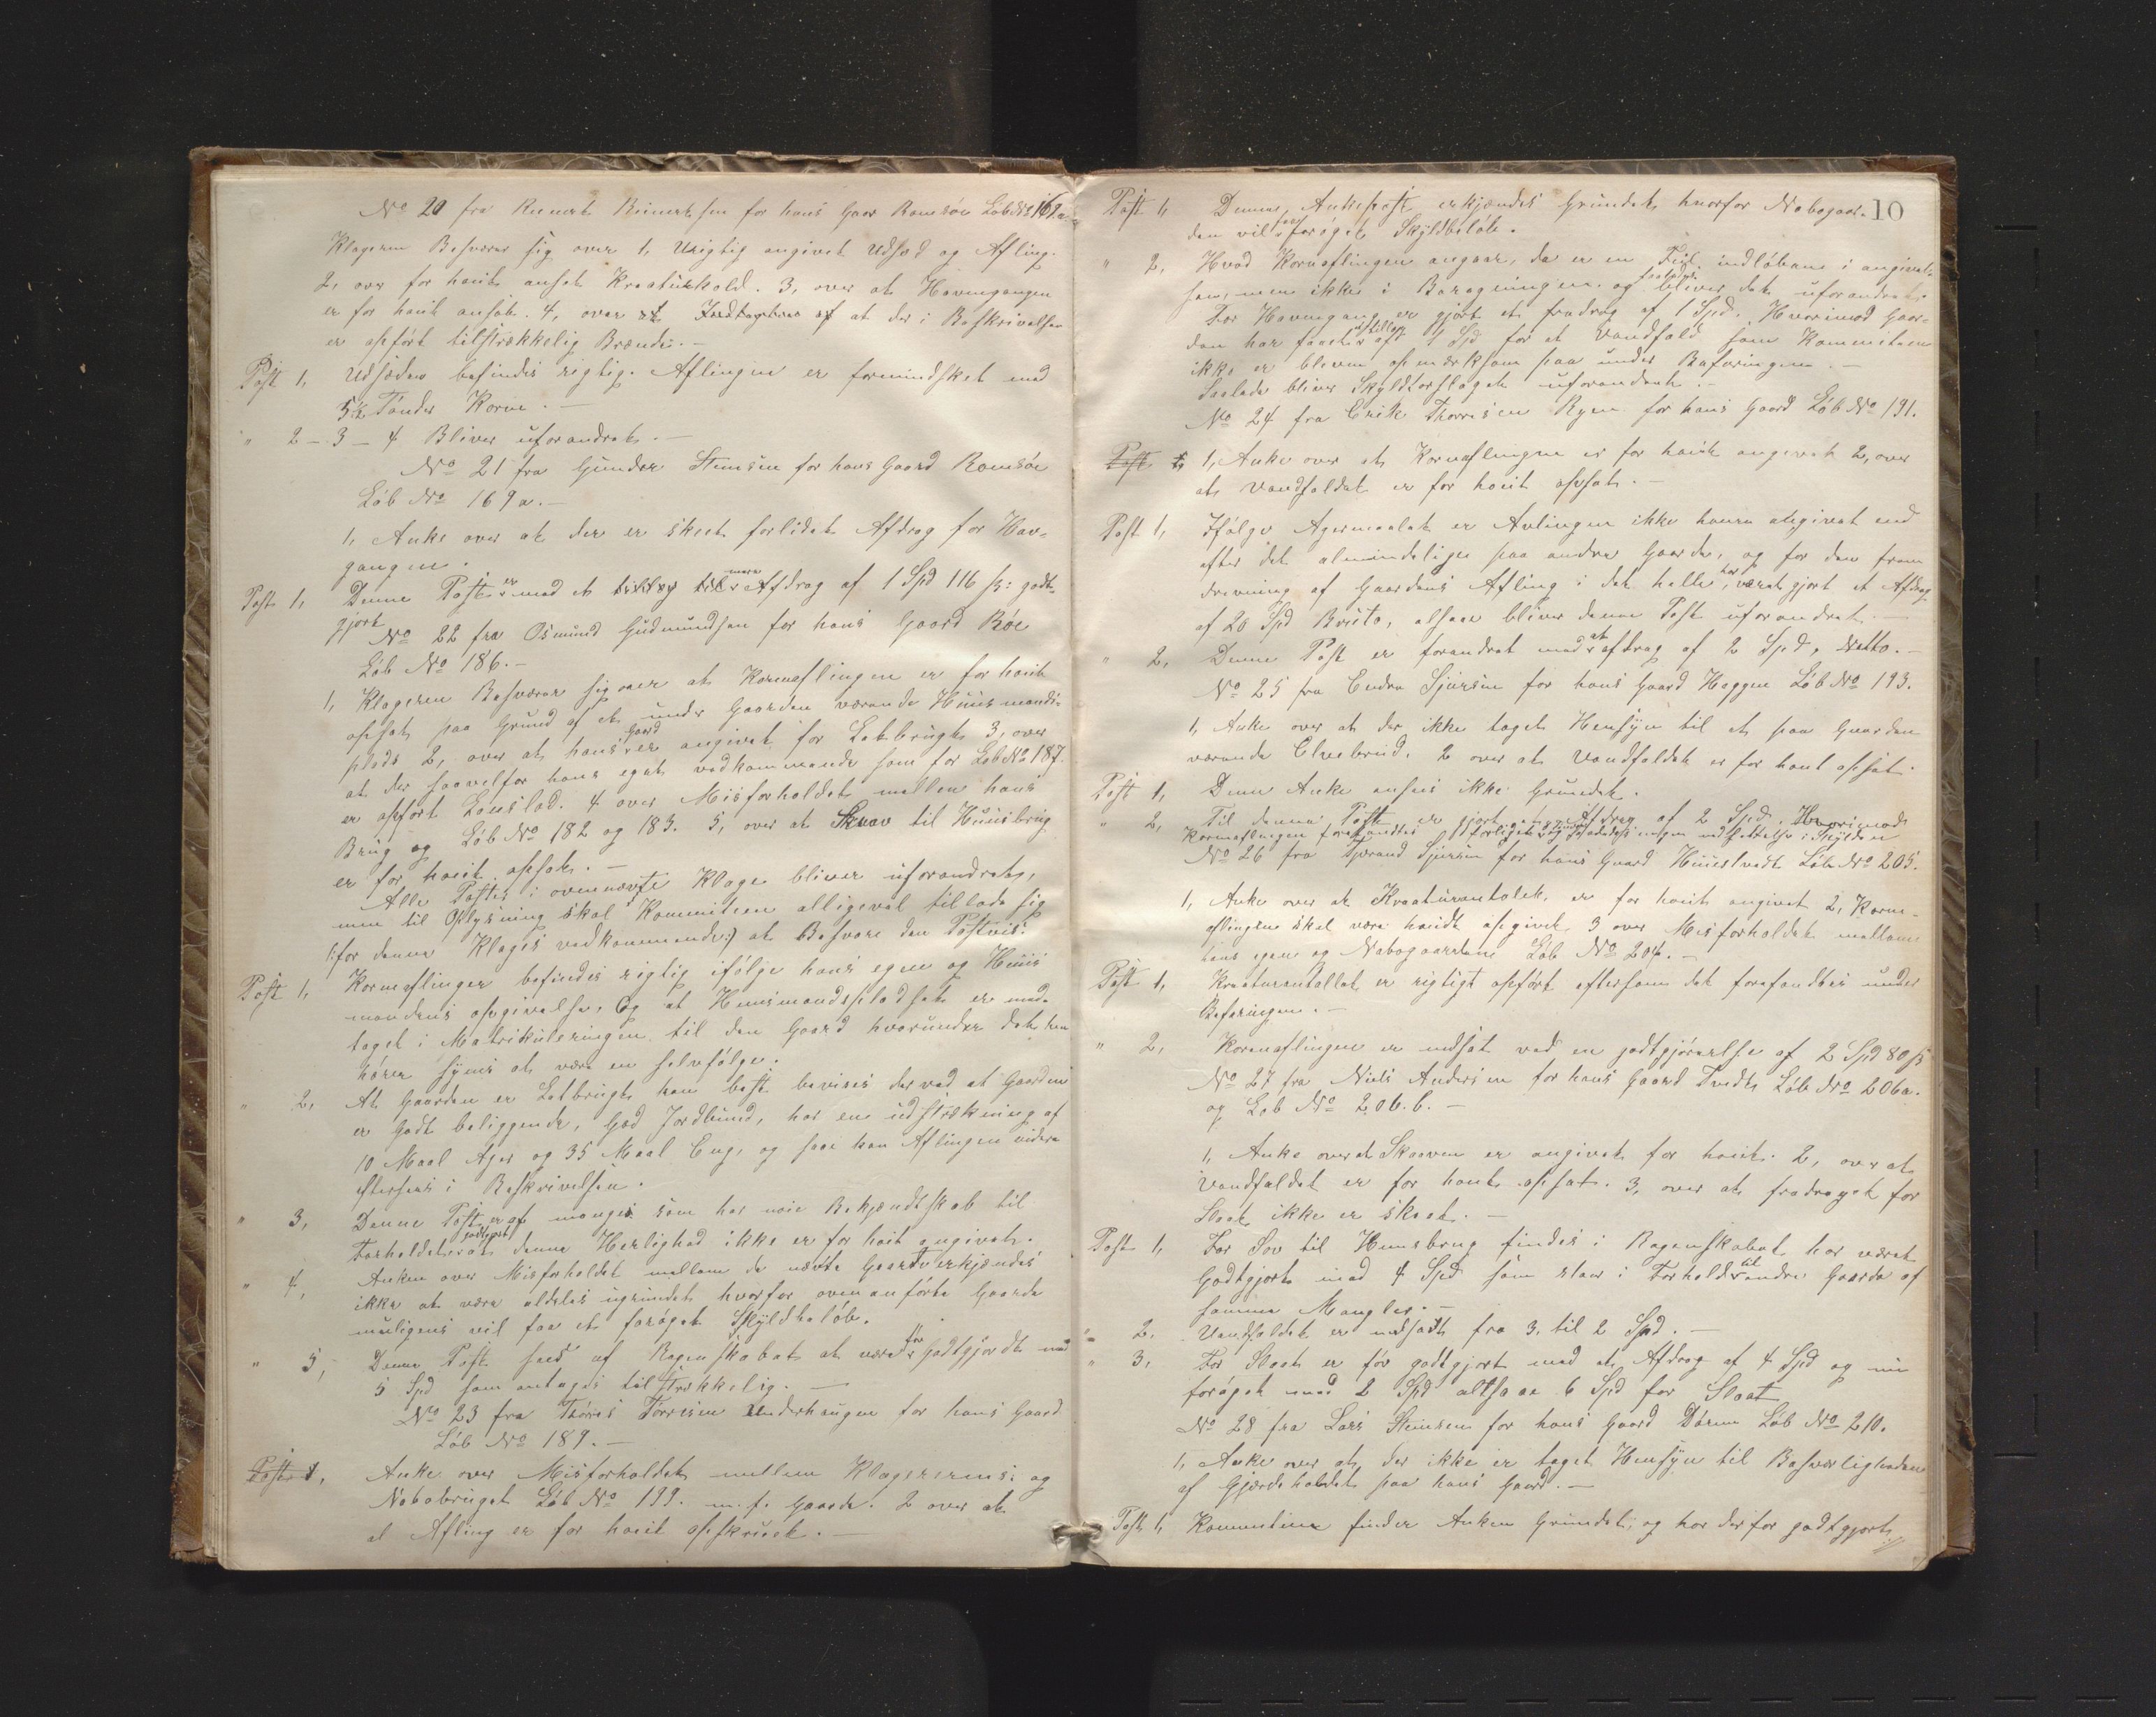 No 20 fra Reinert Reinertsen for hans Gaar Romsöe Löb No 169a.
Klageren Besværer sig over 1, Urigtig angivet Udsæd og Afling.
2, over for høit ansat Kreaturhold. 3, over at Havnegangen
er for høit ansat. 4, over at der i Beskrivelsen
er opfört tilstrækkelig Brænde. —
Post 1, Udsæden befindes rigtig. Aflingen er formindsket med
5½ Tönder Korn. —
" 2 – 3 – 4 Bliver uforandret. —
No 21 fra Gunder Stensen for hans Gaard Romsöe
Löb No 169a. —
1, Anke over at der er skeet forlidet Afdrag for Hav-
gangen.
Post 1, Denne Post er med et mere Afdrag af 1 Spd 116 ß: godt-
gjort
No 22 fra Osmund Gudmundsen for hans Gaard Röe
Löb No 186. —
1, Klageren Besværer sig over at Kornaflingen er for høit
opsat paa Grund af et under Gaarden værende Huusmands-
plads 2, over at hans Gaard er angivet for Letbrugt 3, over
at der saavelfor hans eget vedkommende som for Löb No 187.
er opfört Louslad. 4 over Misforholdet mellem hans
Brug og Löb No 182 og 183. 5, over at Skaav til Huusbrug
er for høit opsat. —
Alle Poster i ovennævte Klage bliver uforandret,
men til Oplysning skal Kommiteen alligevel tillade sig
(:for denne Klages vedkommende:) at Besvare den Postvis:
Post 1, Kornaflingen befindes rigtig ifölge hans egen og Huus
mandens opgivelse, Og at Huusmandspladset er med-
taget i Matrikuleringen til den Gaard hvorunder det hen
hörer synes at være en selvfölge.
" 2, At Gaarden er Letbrugt kan best bevises derved at Gaarden
er godt beliggende, God Jordbund, har en udstrækning af
10 Maal Ager og 35 Maal Eng, og saa kan Aflingen videre
eftersees i Beskrivelsen.
" 3, Denne Post er af mange som har nøie Bekjendtskab til
Forholdet godtgjort at denne Herlighed ikke er for høit angivet.
" 4, Anken over Misforholdet mellem de nævte Gaarde erkjendes
ikke at være aldeles ugrundet hvorfor ovenanförte Gaarde
muligens vil faa et foröget Skyldbelöb.
" 5, Denne Post sees af Regnskabet at være för Godtgjordt med
5 Spd som antages tilstrækkelig. —
No 23 fra Törres Törresen Underhaugen for hans Gaard
Löb No 189. —
Post 1, Anke over Misforholdet mellem Klagerens og
Nabobruget Löb No 199. m. f. Gaarde. 2 over at
at Afling er for høit opskruet. —
10
Post 1, Denne Ankepost erkjendes Grundet hvorfor Nabogaar-
den vil faa foröget Skyldbelöb.
" 2, Hvad Kornaflingen angaar, da er en Feil indlöbene i angivel-
sen, men ikke i Beregningen og bliver det uforandret.
For Havnegang er gjört et fradrag af 1 Spd. Hvorimod Gaar-
den har faaet et tillæg af 1 Spd for et Vandfald som Kommiteen
ikke er bleven opmerksom paa under Befaringen. —
Saalede bliver Skyldforslaget uforandret. —
No 24 fra Erik Thorresen Ryen for hans Gaard Löb No 191.
1, Anke over at Kornaflingen er for høit angivet 2, over
at Vandfaldet er for høit opsat. —
Post 1, Ifölge Agermaalet er Avlingen ikke høiere angivet end
efter det almindelige paa andre Gaarde, og for den frem
drivning af Gaardens Afling i det hele har været gjort et Afdrag
af 20 Spd Bruto, altsaa bliver denne Post uforandret. —
" 2, Denne Post er forandret med et aftrag af 2 Spd, Netto. —
No 25 fra Endre Sjursen for hans Gaard Heggen Löb No 193.
1, Anke over at der ikke taget Hensyn til et paa Gaarden
værende Elvebrud. 2 over at Vandfaldet er for høit opsat.
Post 1, Denne Anke ansees ikke Grundet.
" 2, Til denne Post er gjort et Afdrag af 2 Spd. Hvorimod
Kornaflingen forefandtes forliget
No 26 fra Tjerand Sjursen for hans Gaard Huustvedt Löb No 205.
1, Anke over at Kreaturantalet, er for høit angivet 2, Korn-
aflingen skal være høidt opgivet 3 over Misforholdet mellem
hans egen og Nabogaardene Löb No 204. —
Post 1, Kreaturantallet er rigtigt opfört eftersom det forefandtes under
Befaringen. —
" 2, Kornaflingen er nedsat ved en godtgjörelse af 2 Spd 80 ß
No 27 fra Niels Andersen for hans Gaard Tvedt Löb No 206a.
og Löb No 206.b. —
1, Anke over at Skoven er angivet for høit. 2, over at
Vandfaldet er for høit opsat. 3, over at fradraget for
Slaat ikke er skeet. —
Post 1, For Sov til Huusbrug findes i Regnskabet har været
Godtgjort med 4 Spd som staar i Forhold til andre Gaarde af
samme Mangler. —
" 2. Vandfaldet er nedsadt fra 3. til 2 Spd. —
" 3, For Slaat er för godtgjort med et Afdrag af 4 Spd og nu
foröget med 2 Spd altsaae 6 Spd for Slaat
No 28 fra Lars Steensen for hans Gaard Dörum Löb No 210.
1, Anke over at, der ikke er taget Hensyn til Besværligheden
af Gjærdeholdet paa hans Gaard. —
Post 1, Kommiteen finder Anken Grundet; og har derfor godtgjort